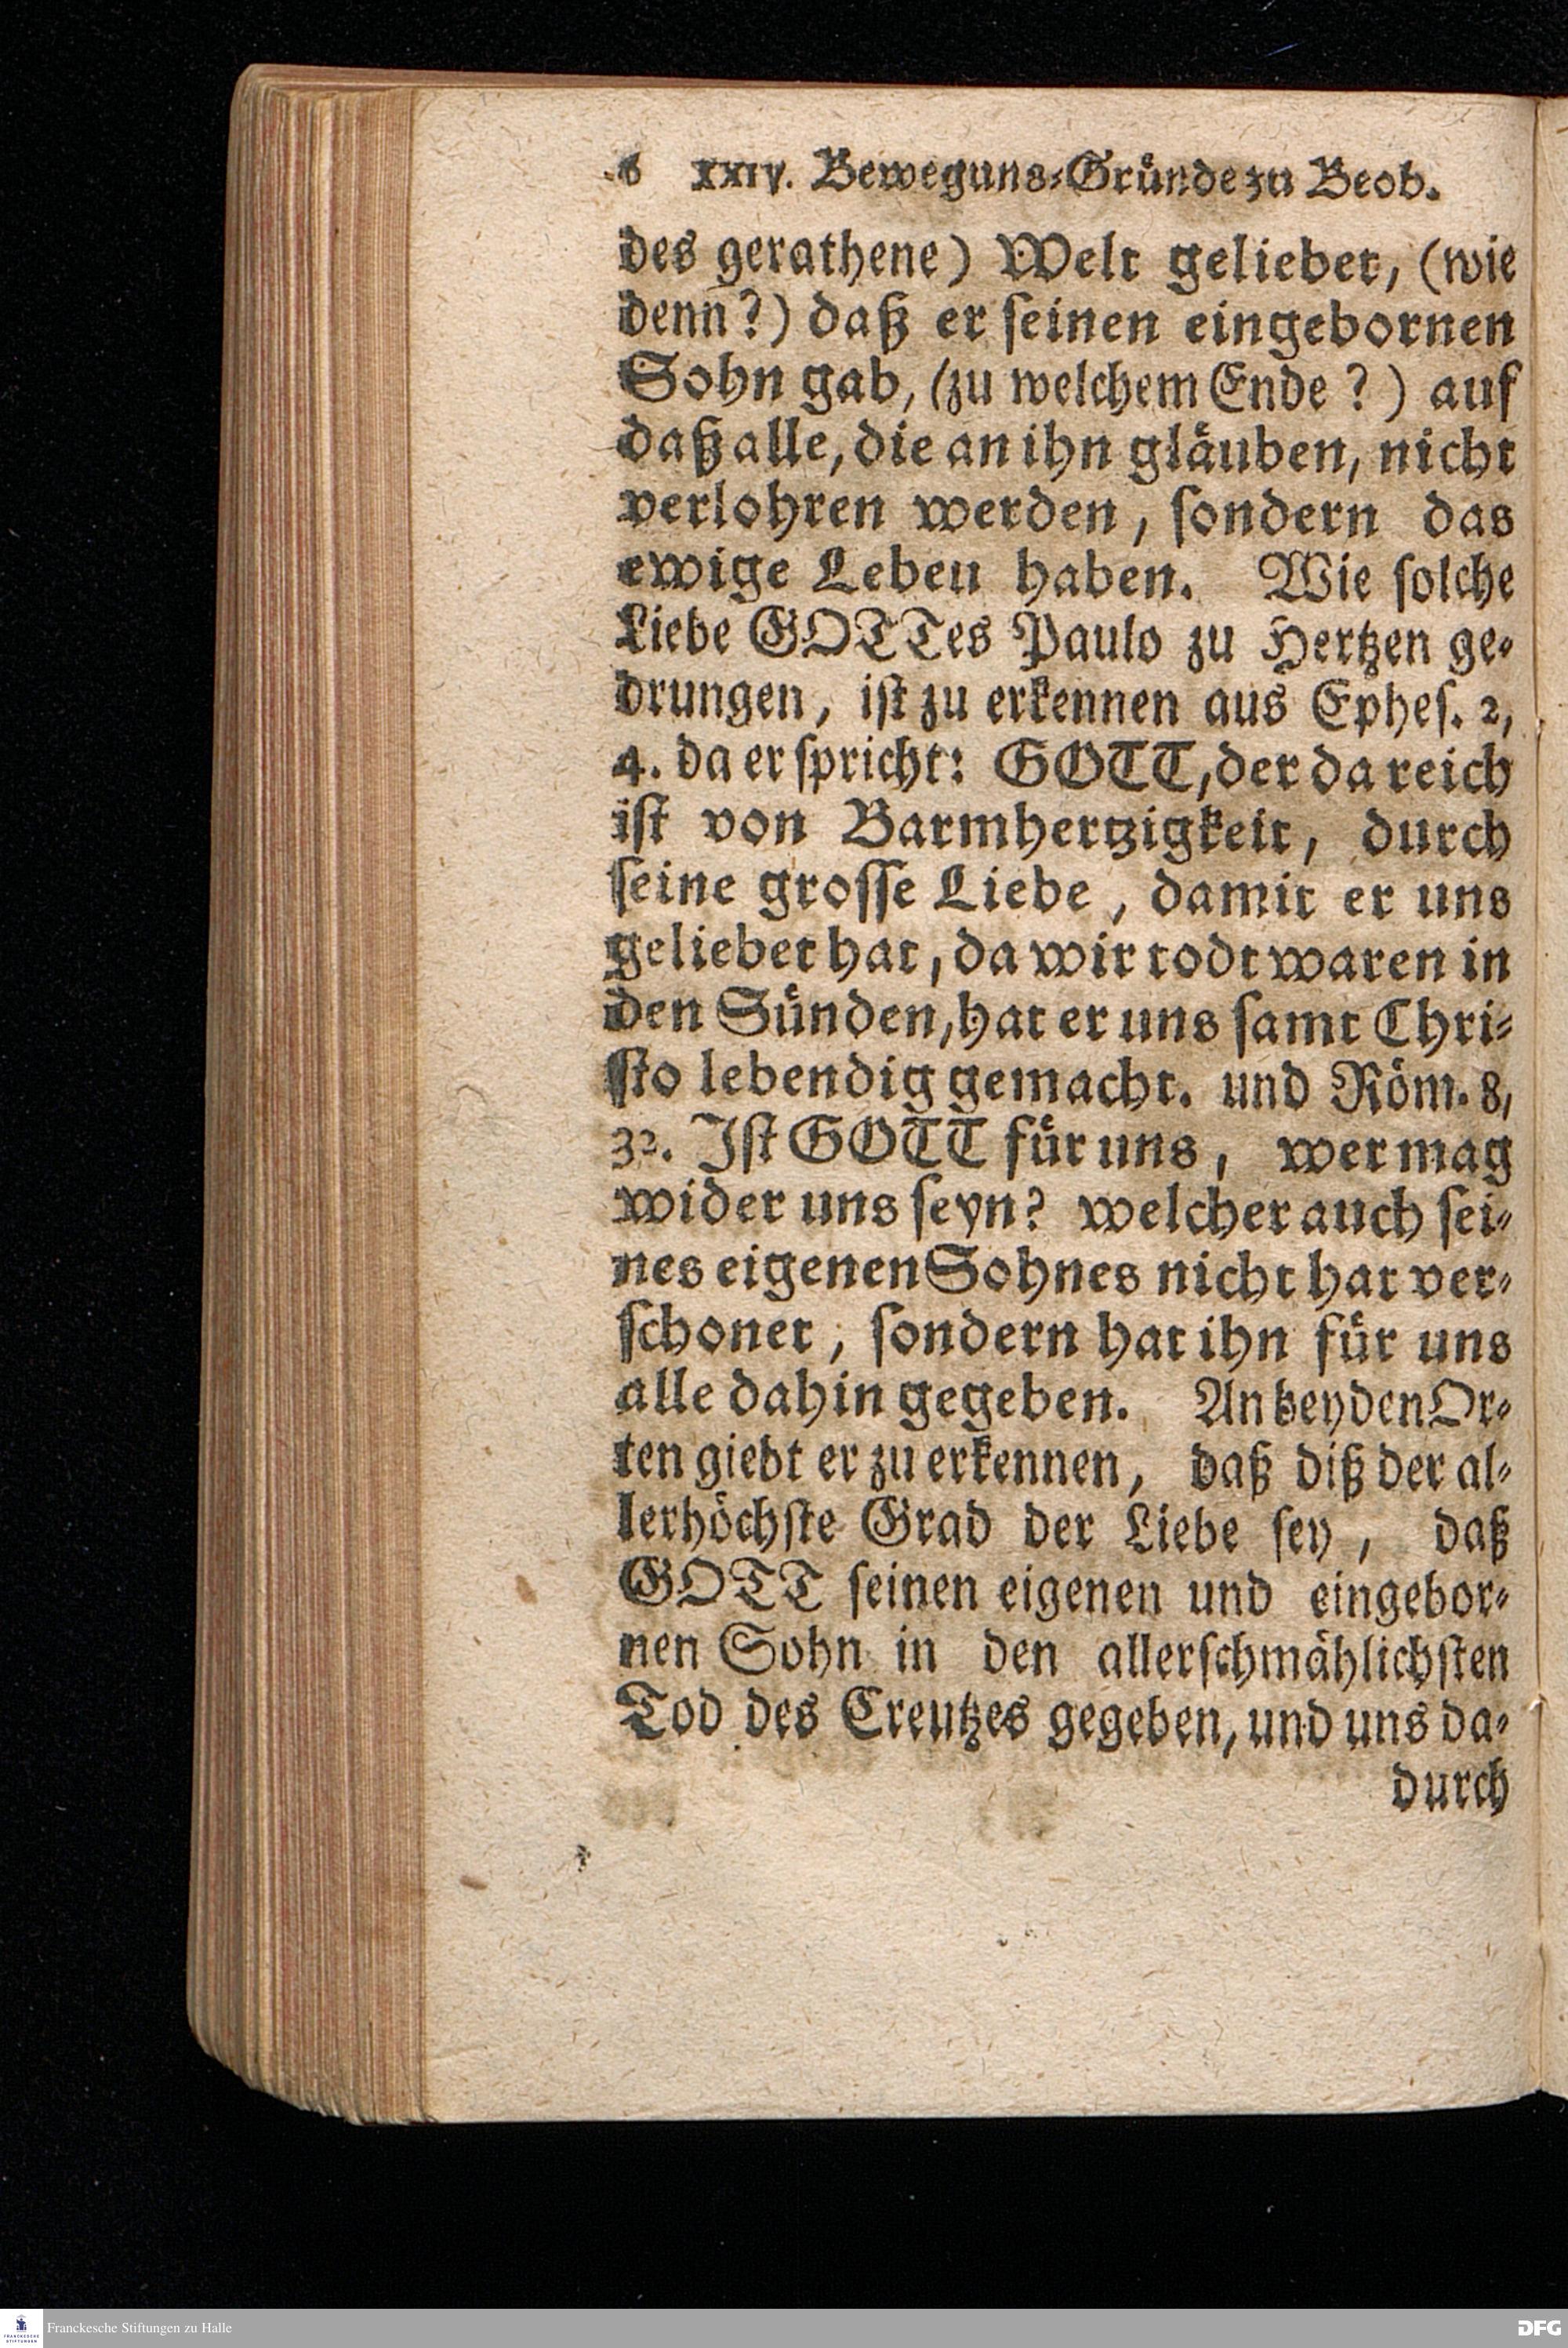 6 XXIV. Beweguns-Gründe zu Beob.
des gerathene) Welt geliebet, (wie
denn?) daß er seinen eingebornen
Sohn gab, (zu welchem Ende?) auf
daß alle, die an ihn gläuben, nicht
verlohren werden, sondern das
ewige Leben haben. Wie solche
Liebe GOTTes Paulo zu Hertzen ge-
drungen, ist zu erkennen aus Ephes. 2,
4. da er spricht: GOTT, der da reich
ist von Barmhertzigkeit, durch
seine grosse Liebe, damit er uns
geliebet hat, da wir todt waren in
den Sünden, hat er uns samt Chri-
sto lebendig gemacht. und Röm. 8,
32. Ist GOTT für uns, wer mag
wider uns seyn? welcher auch sei-
nes eigenen Sohnes nicht hat ver-
schonet, sondern hat ihn für uns
alle dahin gegeben. An beyden Or-
ten giebt er zu erkennen, daß diß der al-
lerhöchste Grad der Liebe sey, daß
GOTT seinen eigenen und eingebor-
nen Sohn in den allerschmählichsten
Tod des Creutzes gegeben, und uns da-
durch
Franckesche Stiftungen zu Halle
DFG